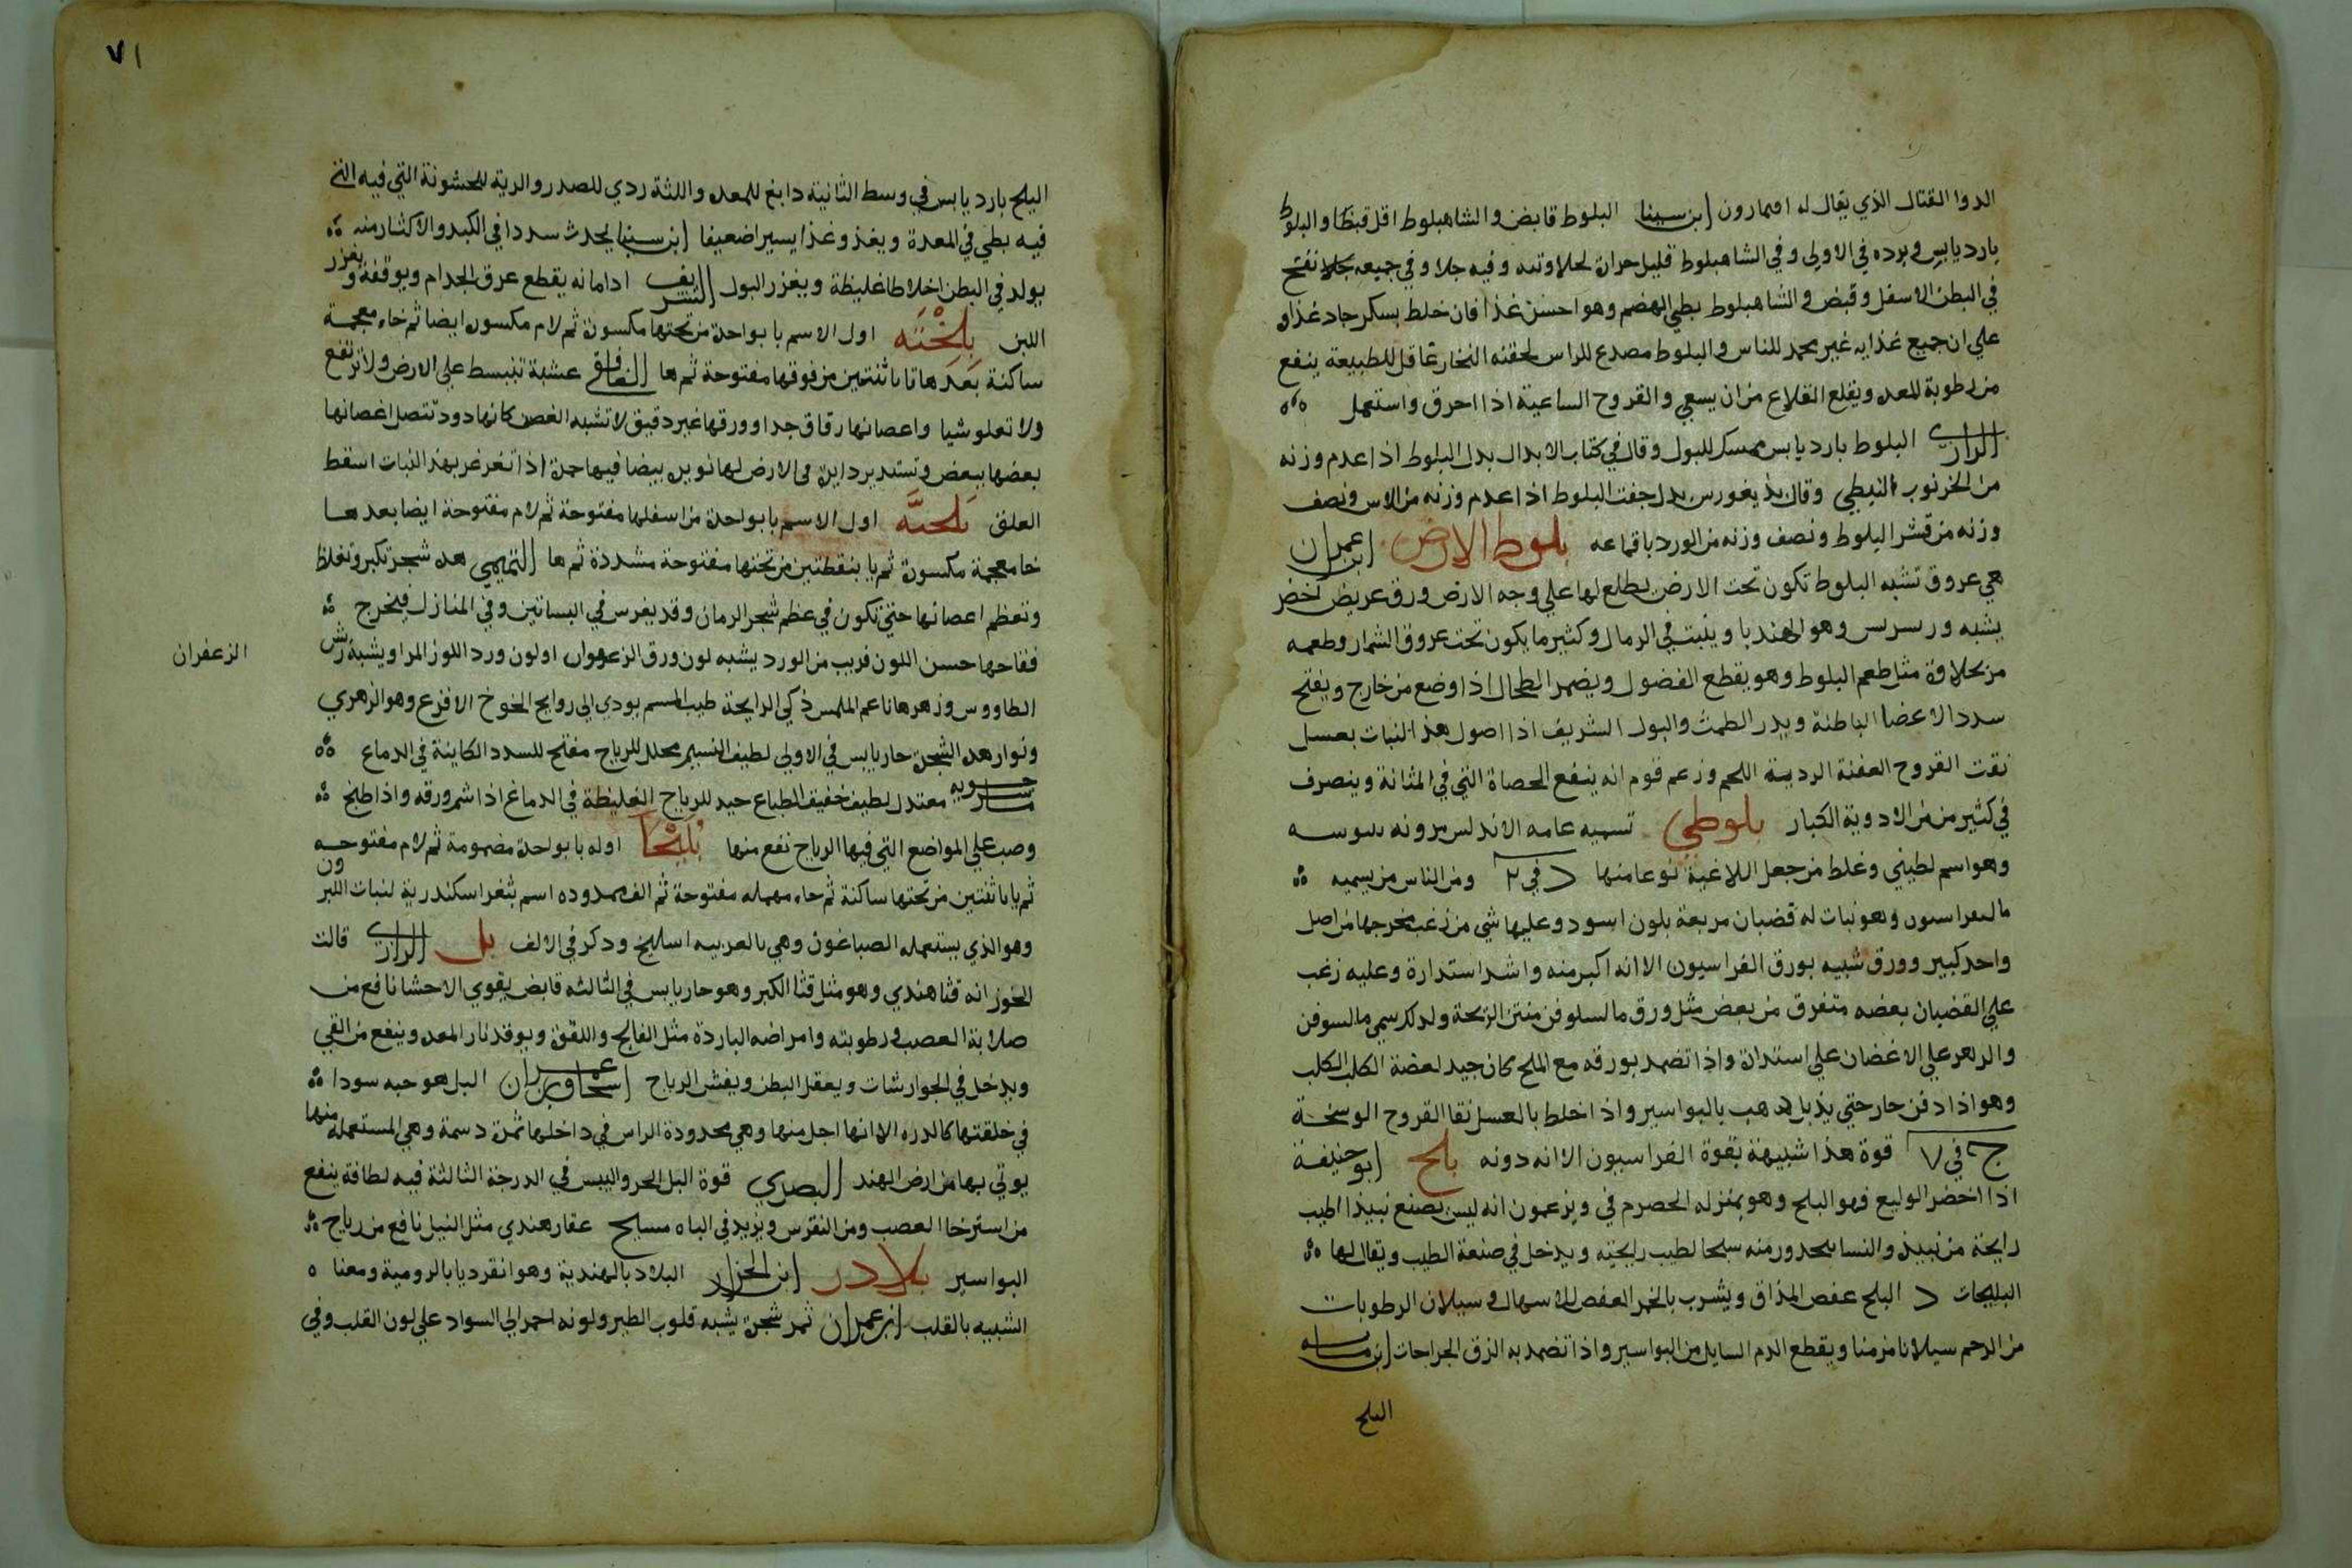 الدوا القتال الذي يقال له اقمارون ابن سينا البلوط قابض والشاهبلوط اقل قبضا والبلوط
بارد يابس وبرده في الاولى وفي الشاهبلوط قليل حرارة لحلاوته وفيه جلا وفي جميعه نفخ
في البطن الاسفل وقبض والشاهبلوط بطي الهضم وهو احسن غذا فان خلط بسكر جاد غذاو
علي ان جميع غذايه غير محمد للناس والبلوط مصدع للراس لحقنه البخار عاقل للطبيعة ينفع
من رطوبة المعده ويقلع القلاع من ان يسعي والقروح الساعية اذا احرق واستعمل
الرازي البلوط بارد يابس ممسك للبول وقال في كتاب الابدال بدل البلوط اذا عدم وزنه
من الخرنوب النبطي وقال بديغورس بدل جفت البلوط اذا عدم وزنه من الاس ونصف
وزنه من قشر البلوط ونصف وزنه من الورد باقماعه بلوط الارض ابن عمران
هي عروق تشبه البلوط تكون تحت الارض يطلع لها علي وجه الارض ورق عريض اخضر
يشبه ورسرس وهو الهندبا وينبت في الرمال وكثير ما يكون تحت عروق الشمار وطعمه
من حلاوة مثل طعم البلوط وهو يقطع الفضول ويضمر الطحال اذا وضع من خارج ويفتح
سدد الاعضا الباطنة ويدر الطمث والبول الشريف اذا اصول هذا النبات بعسل
نقت القروح العفنة الردية اللحم وزعم قوم انه ينفع الحصاة التي في المثانة وينصرف
في كثير من من الادوية الكبار بلوطي تسميه عامه الاندلس مرونه سوسه
وهو اسم لطيني وغلط من جعل اللاغية نوعا منها د في ٣ ومن الناس من يسميه
وهو نبات له قضبان مربعة بلون اسود وعليها شي من زغب مخرجها من اصل
واحد كبير وورق شبيه بورق الفراسيون الا انه اكبر منه واشد استدارة وعليه زغب
علي القضبان بعضه متفرق من بعض مثل ورق مالسلوفن منتن الريحة ولذلك سمي مالسوفن
والزهر علي الاغصان علي استدارة واذا تضمد بورقه مع الملح كان جيد لعضة الكلب الكلب
وهو اذا دفن حار حتي يذبل ذهب بالبواسير واذا خلط بالعسل نقا القروح الوسخة
ج في ٧ قوة هذا شبيهة بقوة الفراسيون الا انه دونه بلح ابو حنيفة
اذا اخضر الوليع فهو البلح وهو بمنزله الحصرم في ويزعمون انه ليس يصنع نبيذ اطيب
رايحة من نبيذ والنسا منه سبحا لطيب رايحته ويدخل في صنعة الطيب ويقال لها
البليحات د البلح عفص المذاق ويشرب بالخمر العفص للاسهال و سيلان الرطوبات
من الرحم سيلانا مزمنا ويقطع الدم السايل من البواسير واذا تضمد به الزق الجراحات ابن ماسه
البلح
٧١
البلح بارد يابس في وسط الثانية دابغ للمعده واللثة ردي للصدر والرية للخشونة التي فيه التي
فيه بطي في المعدة ويغذ وغذا يسيرا ضعيفا ابن سينا يحدث سددا في الكبد والاكثار منه
يولد في البطن اخلاطا غليظة ويغزر البول الشريف ادامانه يقطع عرق الجدام ويوقفه ويغزر
اللبن بِلِخْتَه اول الاسم با بواحدة من تحتها مكسورة ثم لام مكسور ايضا ثم خاء معجمة
ساكنة بعدها تا باثنتين من فوقها مفتوحة ثم ها الغافقي عشبة تنبسط علي الارض ولا ترتفع
ولا تعلو شيا واعصانها رقاق جدا وورقها غير دقيق لا تشبه الغصن كانها دود تتصل اغصانها
بعضها ببعض وتستدير دايرة في الارض لها نوير بيضا فيها حمرة اذا تغرغر بهذ النبات اسقط
العلق بَلَخيَّه اول الاسم با بواحدة من اسفلها مفتوحة ثم لام مفتوحة ايضا بعدها
خا معجمة مكسورة ثم يا بنقطتين من تحتها مفتوحة مشددة ثم ها التميمي هده شجر تكبر وتغلظ
وتعظم اعصانها حتي تكون في عظم شجر الرمان وقد يغرس في البساتين وفي المنازل فيخرج
فقاحها حسن اللون قريب من الورد يشبه لون ورق الزعفران او لون ورد اللوز المر او يشبه ريش
الزعفران
الطاووس وزهرها ناعم الملمس ذكي الرايحة طيب المسم يودي الي روايح الخوخ الاقرع وهو الزهري
ونوار هذه الشجرة حار يابس في الاولي لطيف النسيم محلل للرياح مفتح للسدد الكاينة في الدماغ
ماسرحويه معتدل لطيف خفيف الطباع جيد للرياح الغليظة في الدماغ اذا شم ورقه واذا طبخ
وصب علي المواضع التي فيها الرياح نفع منها بُلَيْحَا اوله با بواحدة مضمومة ثم لام مفتوحه
ثم يا باثنتين من تحتها ساكنة ثم حاء مهمله مفتوحة ثم الف ممدوده اسم بثغر اسكندرية لنبات الليرون
وهو الذي يستعمله الصباغون وهي بالعربيه اسليخ وذكر في الالف بل الرازي قالت
الخوز انه قثا هندي وهو مثل قثا الكبر وهو حار يابس في الثالثه قابض يقوي الاحشا نافع من
صلابة العصب ورطوبته وامراضه الباردة مثل الفالج واللقوة ويوقد نار المعده وينفع من القي
ويدخل في الجوارشات ويعقل البطن ويفش الرياح اسحاق بن عمران البل هو حبه سودا
في خلقتها كالدره الا انها اجل منها وهي محدودة الراس في داخلها ثمرة دسمة وهي المستعمله منها
يوتي بها من ارض الهند البصري قوة البل الحر واليبس في الدرجة الثالثة فيه لطافة ينفع
من استرخا العصب ومن النقرس ويزيد في الباه مسيح عقار هندي مثل النيل نافع من رياح
البواسير بلادر ابن الجزار البلادر بالهندية وهو انقرديا بالرومية ومعنا
الشبيه بالقلب ابن عمران ثمر شجرة يشبه قلوب الطير ولونه احمر الي السواد علي لون القلب وفي